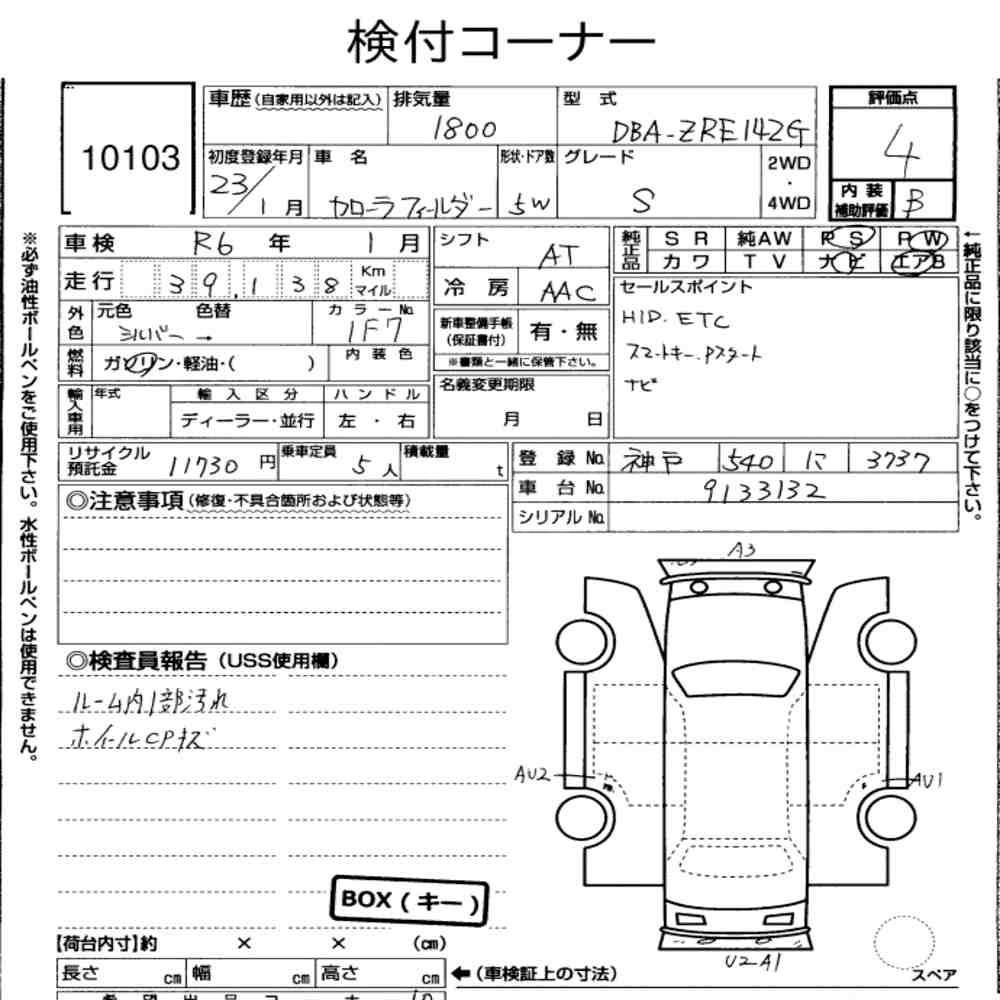 検付コーナー
10103
車歴(自家用以外は記入) 排気量 1800 型 式 DBA-ZRE142G
評価点 4
内装補助評価 B
初度登録年月 23/1月 車 名 カローラフィールダー 形状・ドア数 5W グレード S 2WD・4WD
車検 R6 年 1 月
走行 39,138 Km マイル
外色 元色 シルバー → 色替 カラーNo. 1F7
燃料 ガソリン・軽油・( ) 内装色
輸入車用 年式 輸入区分 ディーラー・並行 ハンドル 左・右
シフト AT
冷房 AAC
新車整備手帳(保証書付) 有・無
※書類と一緒に保管下さい。
名義変更期限 月 日
純正品 SR 純AW PS PW
カワ TV ナビ エアB
セールスポイント
HID. ETC
スマートキー.Pスタート
ナビ
←純正品に限り該当に○をつけて下さい。
※必ず油性ボールペンをご使用下さい。水性ボールペンは使用できません。
リサイクル預託金 11730 円 乗車定員 5人 積載量 t
登録No. 神戸 540 に 3737
車台No. 9133132
シリアルNo.
◎注意事項(修復・不具合箇所および状態等)
◎検査員報告(USS使用欄)
ルーム内1部汚れ
ホイールCPキズ
A3
AU2
AU1
U2-A1
BOX(キー)
スペア
【荷台内寸】約 × × (cm)
長さ cm 幅 cm 高さ cm ←(車検証上の寸法)